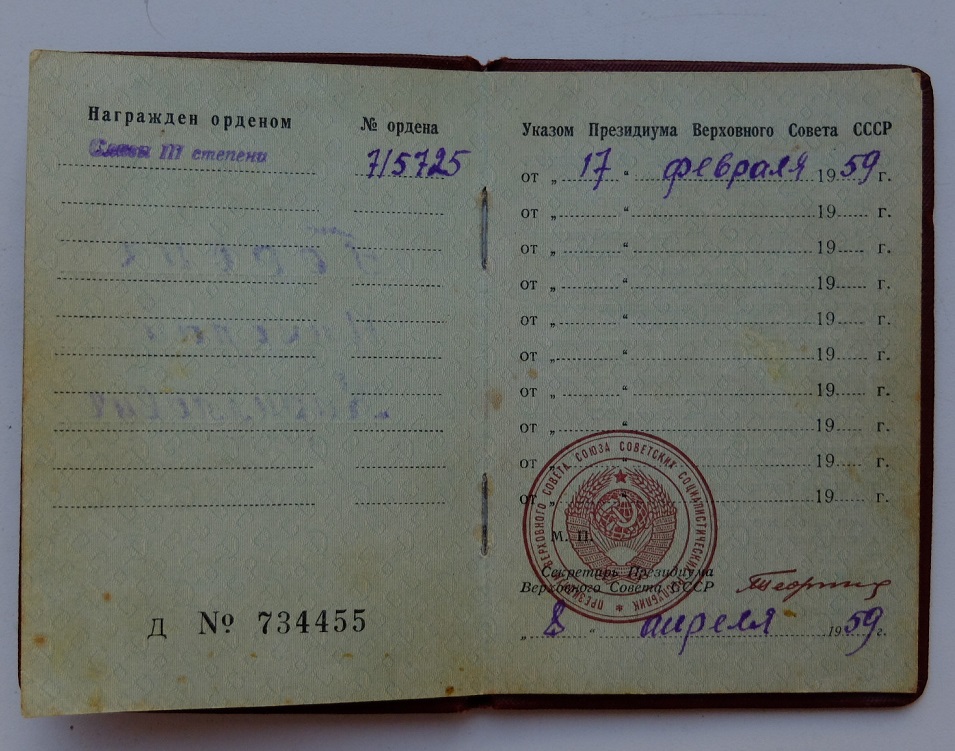 Награжден орденом № ордена
Славы III степени 715725
Д № 734455
Указом Президиума Верховного Совета СССР
от „ 17 “ февраля 1959 г.
от „ “ 19 г.
от „ “ 19 г.
от „ “ 19 г.
от „ “ 19 г.
от „ “ 19 г.
от „ “ 19 г.
от „ “ 19 г.
от „ “ 19 г.
от „ “ 19 г.
ПРЕЗИДИУМ ВЕРХОВНОГО СОВЕТА СОЮЗА СОВЕТСКИХ СОЦИАЛИСТИЧЕСКИХ РЕСПУБЛИК
М. П.
Секретарь Президиума
Верховного Совета СССР
„ 8 “ апреля 1959 г.